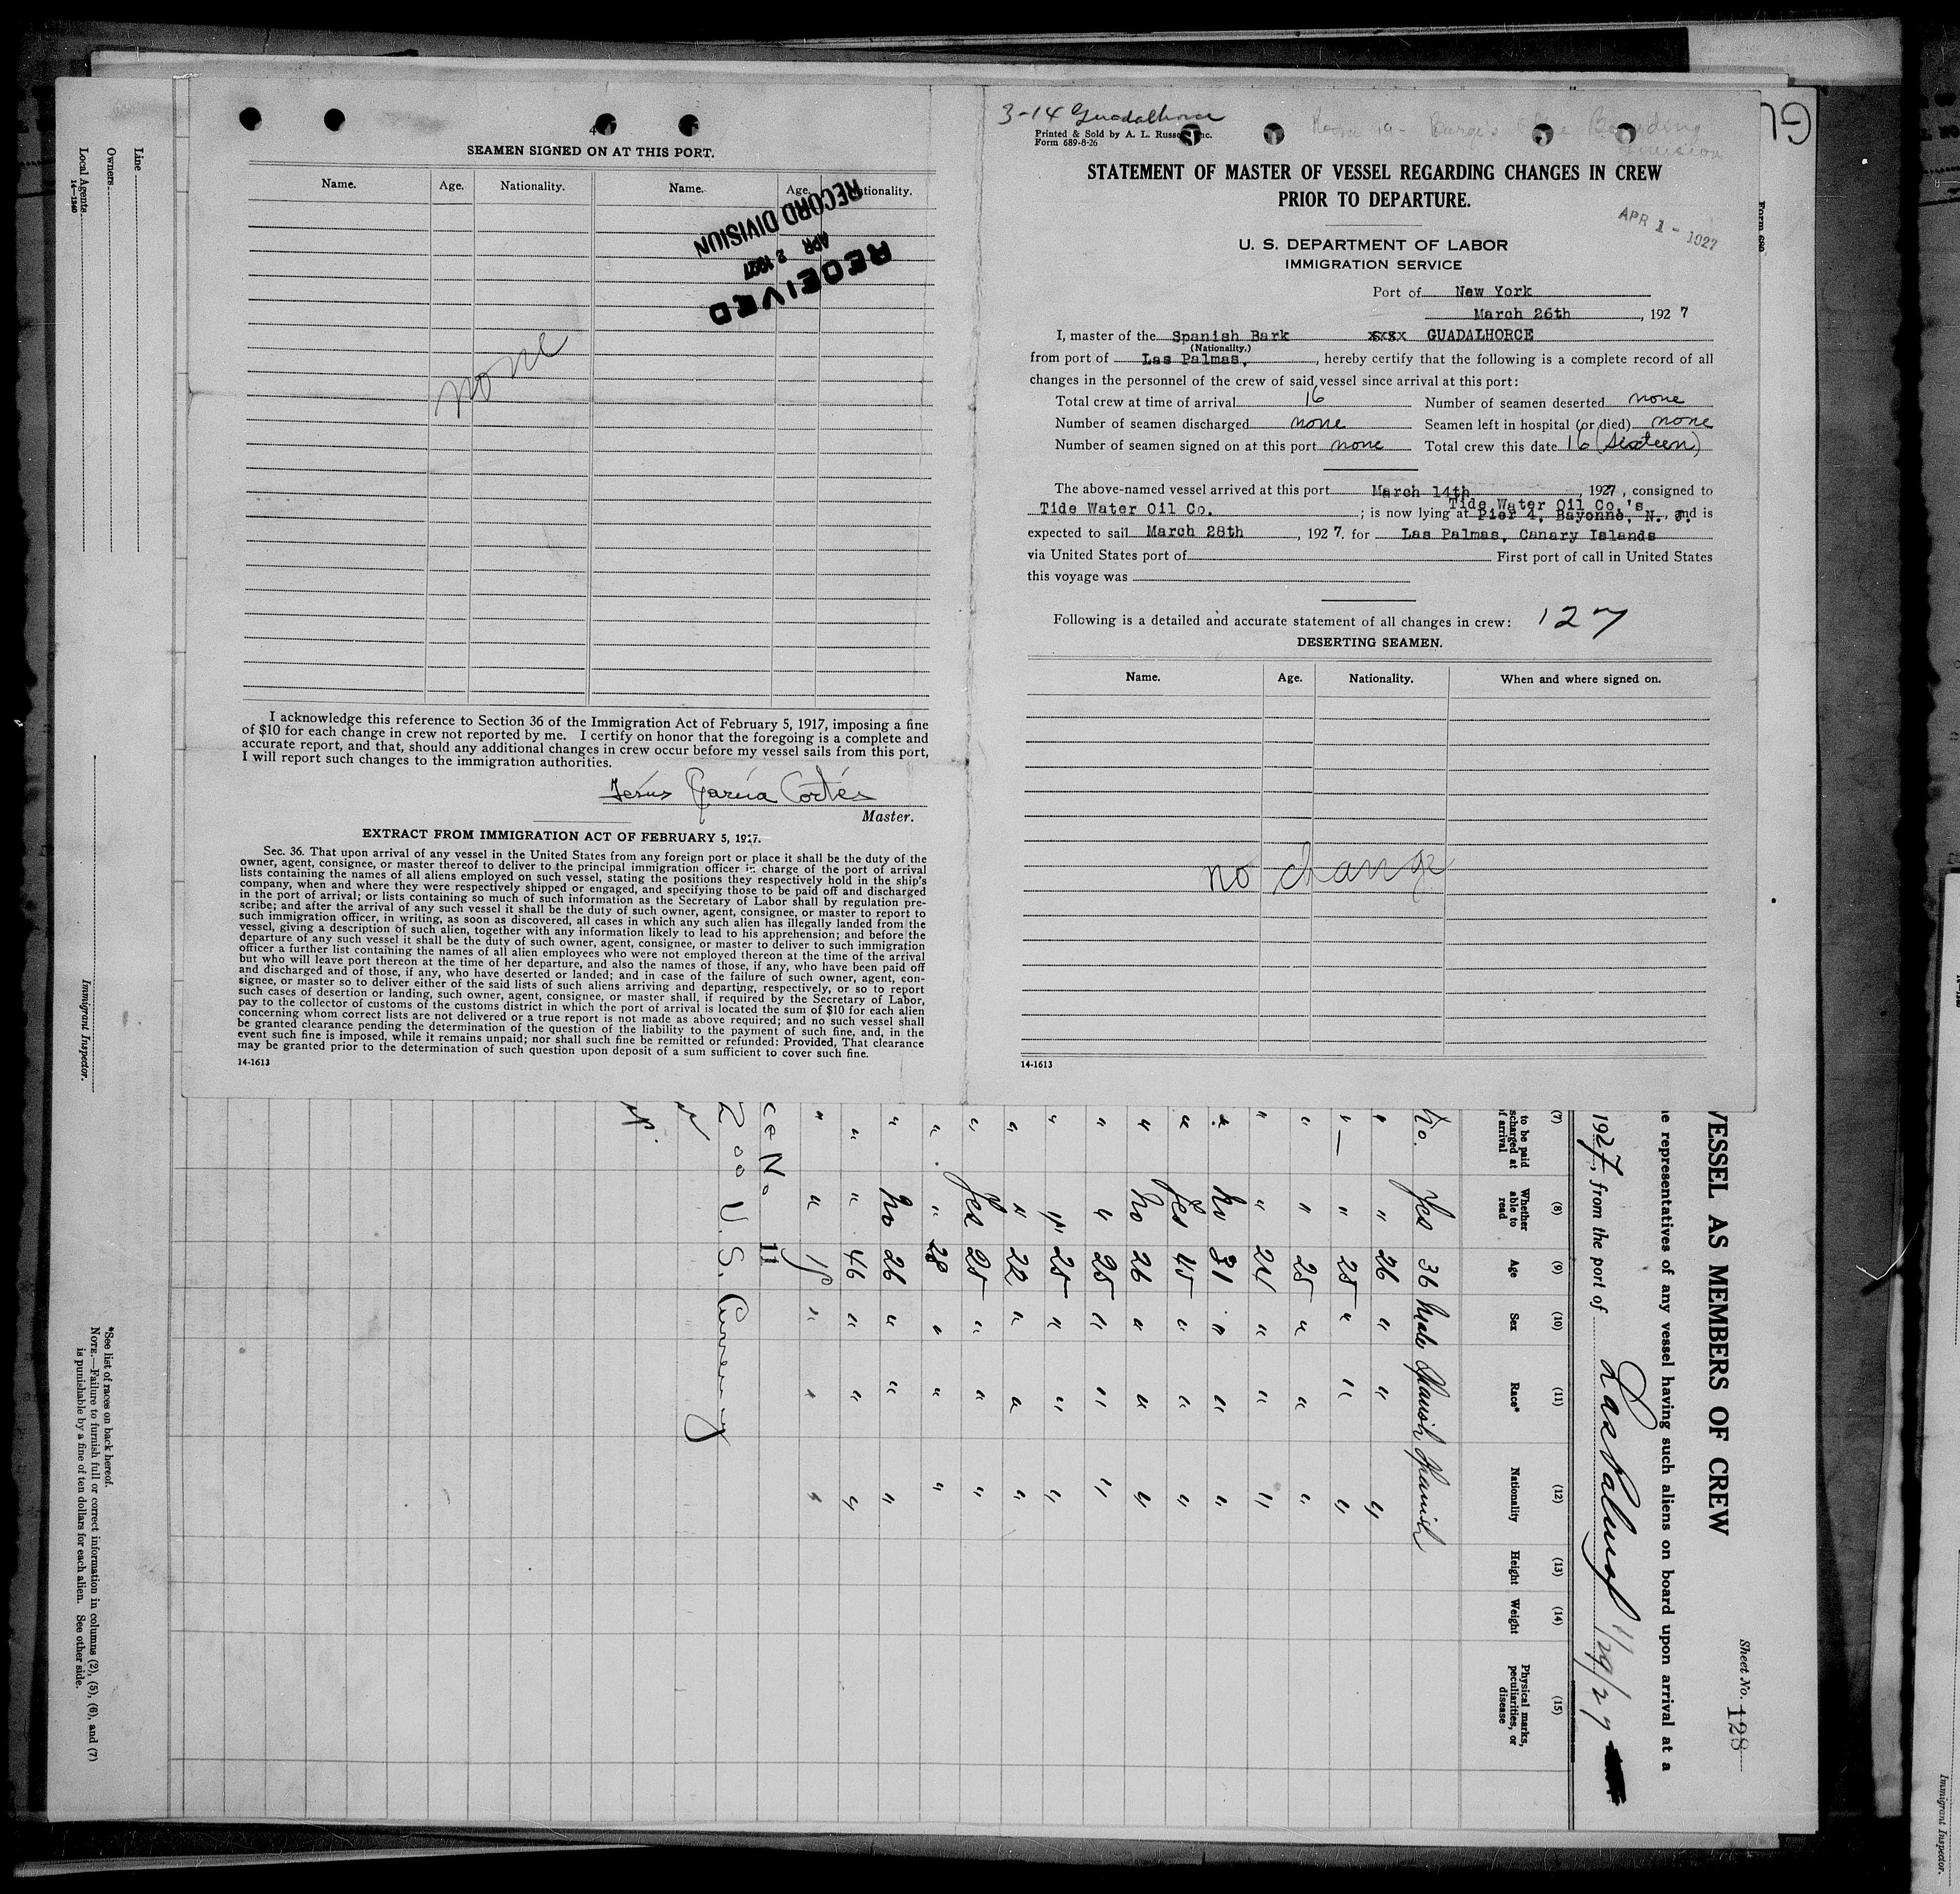 4
SEAMEN SIGNED ON AT THIS PORT.
Name. Age. Nationality. Name. Age. Nationality.
RECEIVED
APR 2 1927
RECORD DIVISION
none
I acknowledge this reference to Section 36 of the Immigration Act of February 5, 1917, imposing a fine
of $10 for each change in crew not reported by me. I certify on honor that the foregoing is a complete and
accurate report, and that, should any additional changes in crew occur before my vessel sails from this port,
I will report such changes to the immigration authorities.
Jesús García Cortés
Master.
EXTRACT FROM IMMIGRATION ACT OF FEBRUARY 5, 1917.
Sec. 36. That upon arrival of any vessel in the United States from any foreign port or place it shall be the duty of the
owner, agent, consignee, or master thereof to deliver to the principal immigration officer in charge of the port of arrival
lists containing the names of all aliens employed on such vessel, stating the positions they respectively hold in the ship's
company, when and where they were respectively shipped or engaged, and specifying those to be paid off and discharged
in the port of arrival; or lists containing so much of such information as the Secretary of Labor shall by regulation pre-
scribe; and after the arrival of any such vessel it shall be the duty of such owner, agent, consignee, or master to report to
such immigration officer, in writing, as soon as discovered, all cases in which any such alien has illegally landed from the
vessel, giving a description of such alien, together with any information likely to lead to his apprehension; and before the
departure of any such vessel it shall be the duty of such owner, agent, consignee, or master to deliver to such immigration
officer a further list containing the names of all alien employees who were not employed thereon at the time of the arrival
but who will leave port thereon at the time of her departure, and also the names of those, if any, who have been paid off
and discharged and of those, if any, who have deserted or landed; and in case of the failure of such owner, agent, con-
signee, or master so to deliver either of the said lists of such aliens arriving and departing, respectively, or so to report
such cases of desertion or landing, such owner, agent, consignee, or master shall, if required by the Secretary of Labor,
pay to the collector of customs of the customs district in which the port of arrival is located the sum of $10 for each alien
concerning whom correct lists are not delivered or a true report is not made as above required; and no such vessel shall
be granted clearance pending the determination of the question of the liability to the payment of such fine, and, in the
event such fine is imposed, while it remains unpaid; nor shall such fine be remitted or refunded: Provided, That clearance
may be granted prior to the determination of such question upon deposit of a sum sufficient to cover such fine.
14-1613
3-14 Guadalhorce
Printed & Sold by A. L. Russell, Inc.
Form 689-8-26
STATEMENT OF MASTER OF VESSEL REGARDING CHANGES IN CREW
PRIOR TO DEPARTURE.
APR 1 - 1927
U. S. DEPARTMENT OF LABOR
IMMIGRATION SERVICE
Port of New York
March 26th, 1927
I, master of the Spanish Bark xxxx GUADALHORCE
(Nationality.)
from port of Las Palmas, , hereby certify that the following is a complete record of all
changes in the personnel of the crew of said vessel since arrival at this port:
Total crew at time of arrival 16 Number of seamen deserted none
Number of seamen discharged none Seamen left in hospital (or died) none
Number of seamen signed on at this port none Total crew this date 16 (sixteen)
The above-named vessel arrived at this port March 14th, 1927, consigned to
Tide Water Oil Co. ; is now lying at Tide Water Oil Co.'s Pier 4, Bayonne, N. J., and is
expected to sail March 28th, 1927. for Las Palmas, Canary Islands
via United States port of First port of call in United States
this voyage was
Following is a detailed and accurate statement of all changes in crew: 127
DESERTING SEAMEN.
Name. Age. Nationality. When and where signed on.
no change
14-1613
Form 689
GU
VESSEL AS MEMBERS OF CREW
Sheet No. 128
representatives of any vessel having such aliens on board upon arrival at a
1927, from the port of Las Palmas 1/29/27
(7) (8) (9) (10) (11) (12) (13) (14) (15)
to be paid
scharged at
f arrival
Whether
able to
read
Age
Sex
Race*
Nationality
Height
Weight
Physical marks,
peculiarities, or
disease
No. Yes 36 Male Spanish Spanish
" " 26 " " "
" " 25 " " "
" " 25 " " "
" " 24 " " "
" No 31 " " "
" Yes 45 " " "
" No 26 " " "
" " 25 " " "
" " 25 " " "
" " 22 " " "
" Yes 25 " " "
" " 28 " " "
" No 26 " " "
" " 46 " " "
" " 18 " " "
No 11
200 U.S. Currency
Line
Owners
Local Agents
14-1240
Immigrant Inspector.
*See list of races on back hereof.
NOTE.—Failure to furnish full or correct information in columns (2), (5), (6), and (7)
is punishable by a fine of ten dollars for each alien. See other side.
Immigrant Inspector.